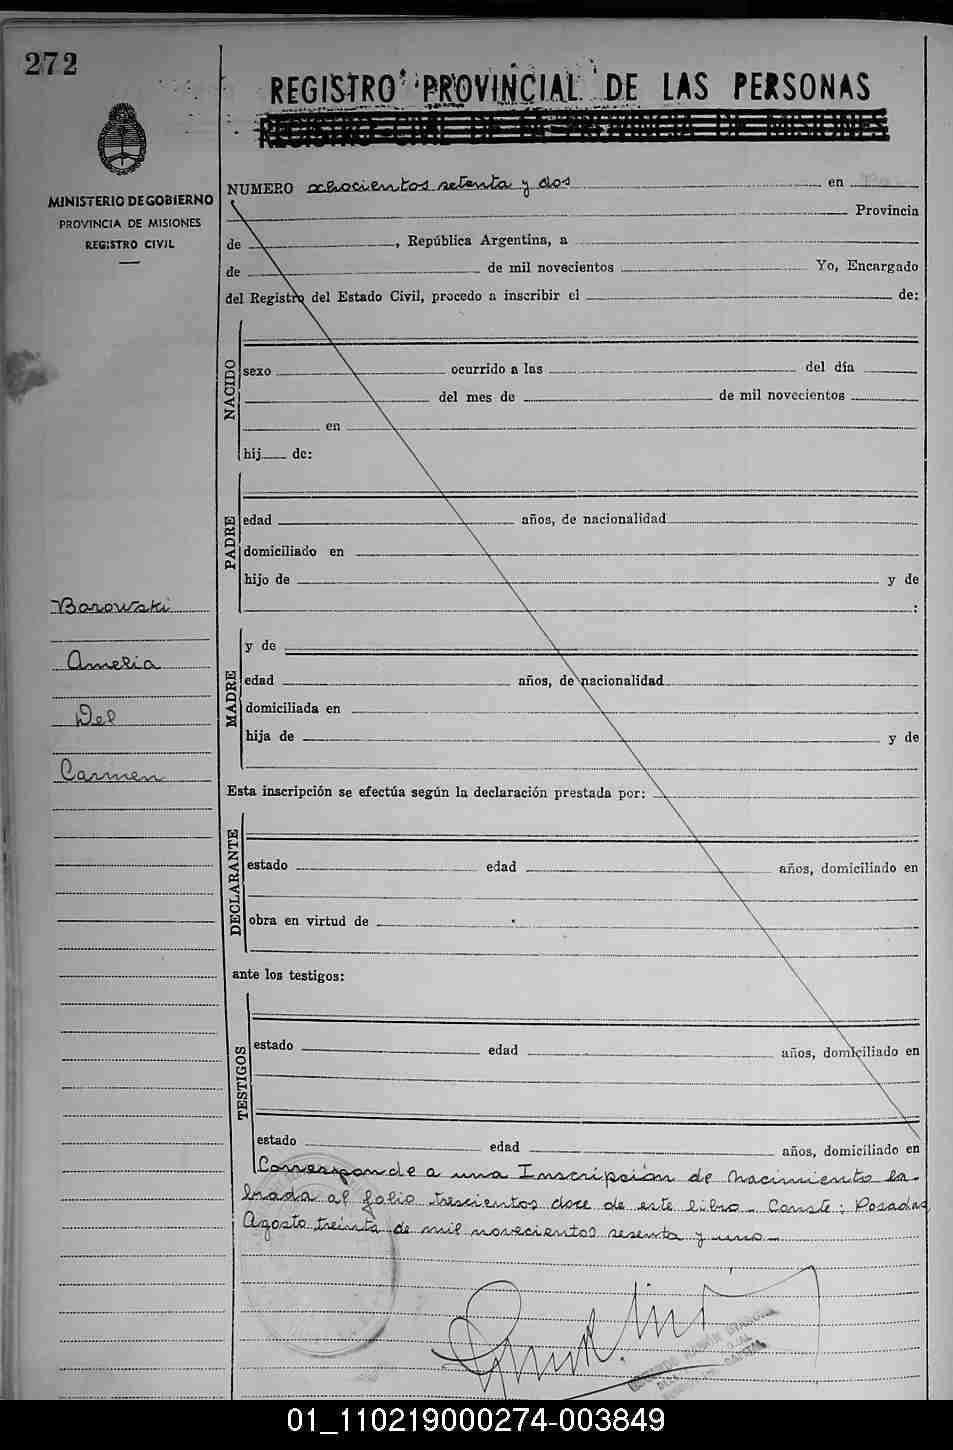 272
REGISTRO PROVINCIAL DE LAS PERSONAS
REGISTRO CIVIL DE LA PROVINCIA DE MISIONES
MINISTERIO DE GOBIERNO
PROVINCIA DE MISIONES
REGISTRO CIVIL
NUMERO ochocientos setenta y dos en
Provincia
de , República Argentina, a
de de mil novecientos Yo, Encargado
del Registro del Estado Civil, procedo a inscribir el de:
NACIDO
sexo ocurrido a las del día
del mes de de mil novecientos
en
hij de:
PADRE
edad años, de nacionalidad
domiciliado en
hijo de y de
:
Borowski
Amelia
Del
Carmen
MADRE
y de
edad años, de nacionalidad
domiciliada en
hija de y de
Esta inscripción se efectúa según la declaración prestada por:
DECLARANTE
estado edad años, domiciliado en
obra en virtud de
ante los testigos:
TESTIGOS
estado edad años, domiciliado en
estado edad años, domiciliado en
Corresponde a una Inscripción de Nacimiento la-
brada al folio trescientos doce de este libro. Conste: Posadas
Agosto treinta de mil novecientos sesenta y uno.-
01_110219000274-003849